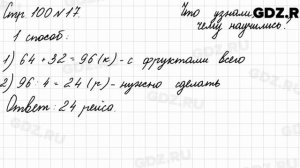 Стр 100 № 17.
Что узнали,
чему научились?
GDZ.RU
1 способ:
1) 64 + 32 = 96 (к) - с фруктами всего
2) 96 : 4 = 24 (р) - нужно сделать
Ответ: 24 рейса.